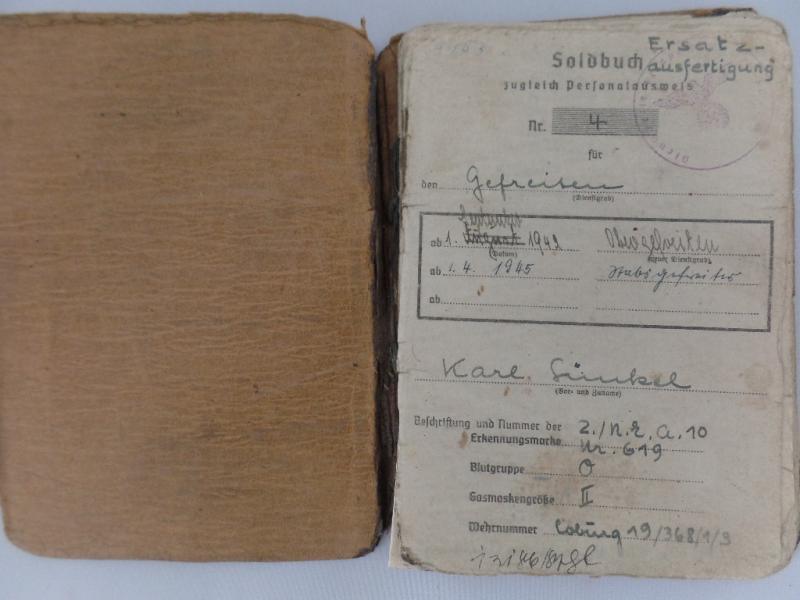 Soldbuch Ersatz-
ausfertigung
zugleich Personalausweis
Nr. 4
für
den Gefreiten
(Dienstgrad)
ab 1. August 1942 Obergefreiten
(Datum) (neuer Dienstgrad)
ab 1. 4. 1945 Stabsgefreiter
ab
Karl
(Vor- und Zuname)
Beschriftung und Nummer der
Erkennungsmarke 2./N.E.A.10
Nr. 619
Blutgruppe O
Gasmaskengröße II
Wehrnummer Coburg 19/368/1/3